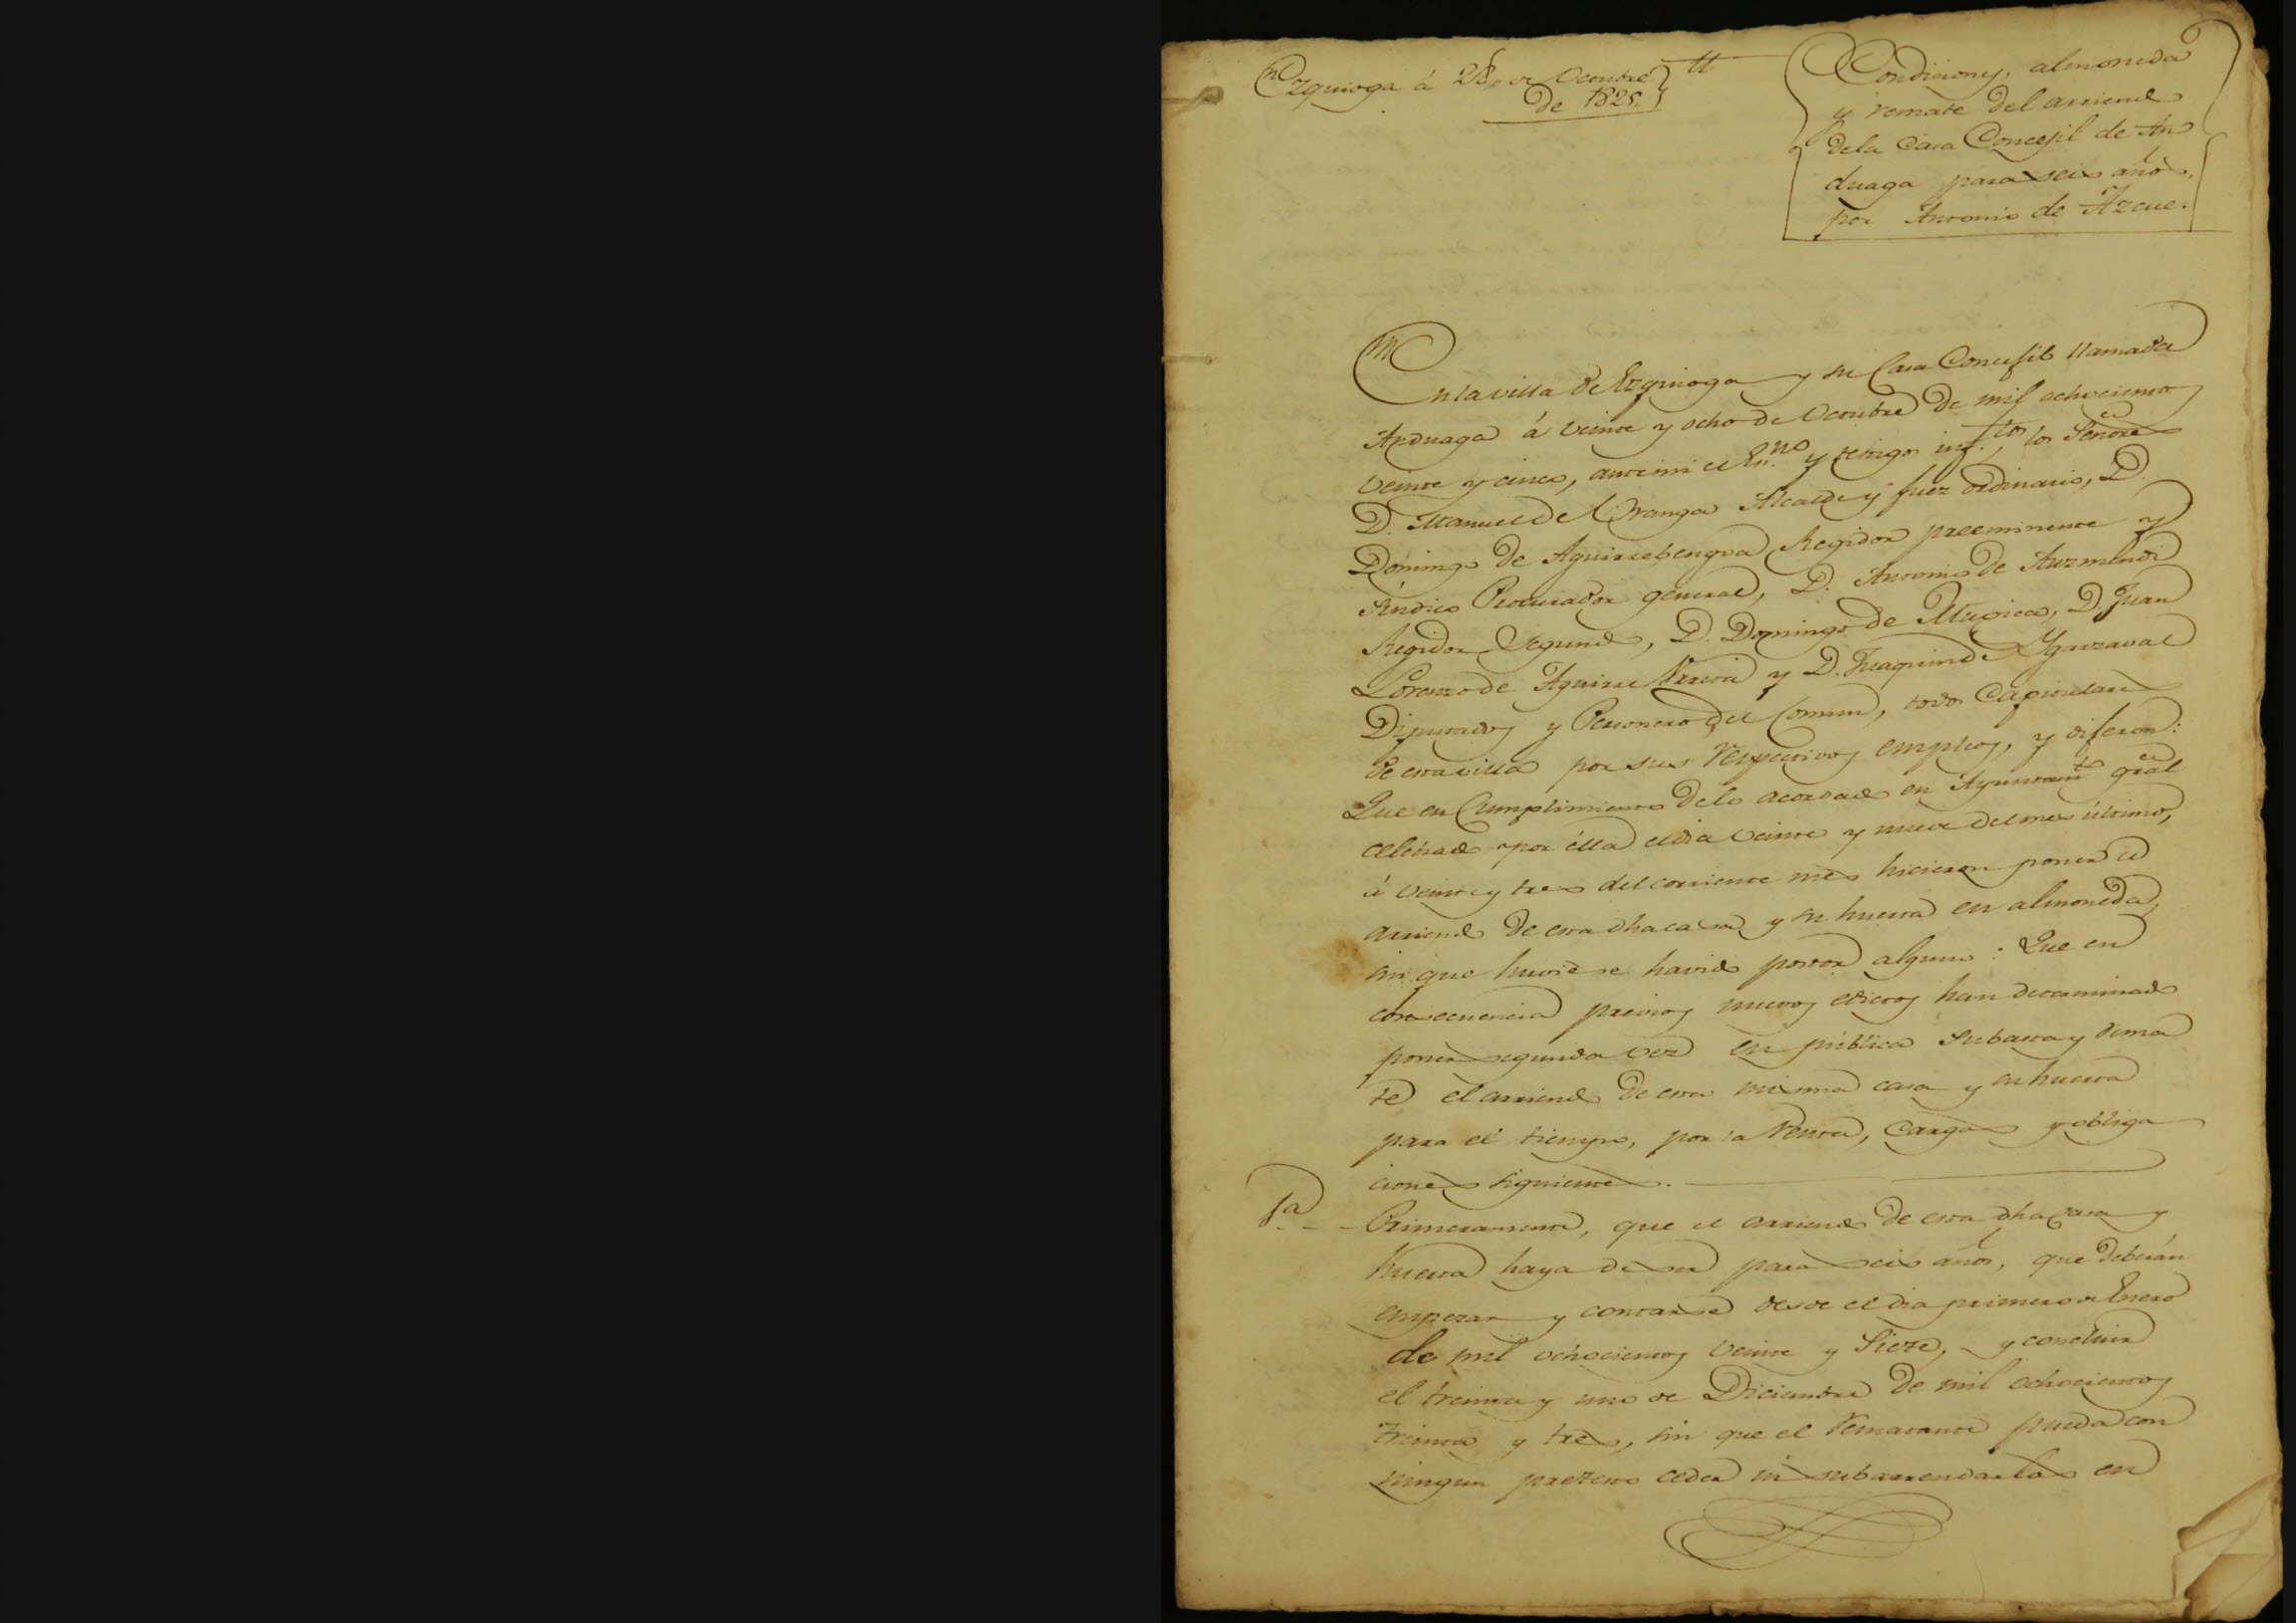 Ezquioga á 28,, de Octubre
de 1825.
Condiciones, almoneda
y remate del arriendo
dela Casa Concejil de An
duaga para seis años,
por Antonio de Azcue.
En la villa de Ezquioga y su Casa Concejil llamada
Anduaga á veinte y ocho de Octubre de mil ochocientos
veinte y cinco, ante mi el Esno. y testigos inf.tos, los Señores
D. Manuel de Oranga Alcalde y Juez ordinario, D.
Domingo de Aguirrebengoa Regidor preeminente y
Sindico Procurador general, D. Antonio de Auzmendi
Regidor Segundo, D. Domingo de Mugica, D. Juan
Lorenzo de Aguirre Urreta y D. Juaquin de Ygarzaval
Diputados y Personero del Comun, todos Capitulares
de esta villa por sus respectivos empleos, y dijeron:
Que en Cumplimiento delo acordado en Ayuntamto. gral
celebrado por élla el dia veinte y nueve del mes último,
á veinte y tres del corriente mes hicieron poner el
arriendo de esta dha casa y su huerta en almoneda,
sin que huviese havido postor alguno: Que en
consecuencia previos nuevos edictos han determinado
poner segunda vez en pública Subasta y rema
te el arriendo de esta misma casa y su huerta
para el tiempo, por la renta, cargas y obliga
ciones siguientes.
1.a Primeramente, que el arriendo de esta dha casa y
huerta haya de ser para seis años, que deberán
empezar y contarse desde el dia primero de Enero
de mil ochocientos veinte y Siete, y concluir
el treinta y uno de Diciembre de mil ochocientos
treinta y tres, sin que el rematante pueda con
ningun pretexto ceder ni subarrendarlas en